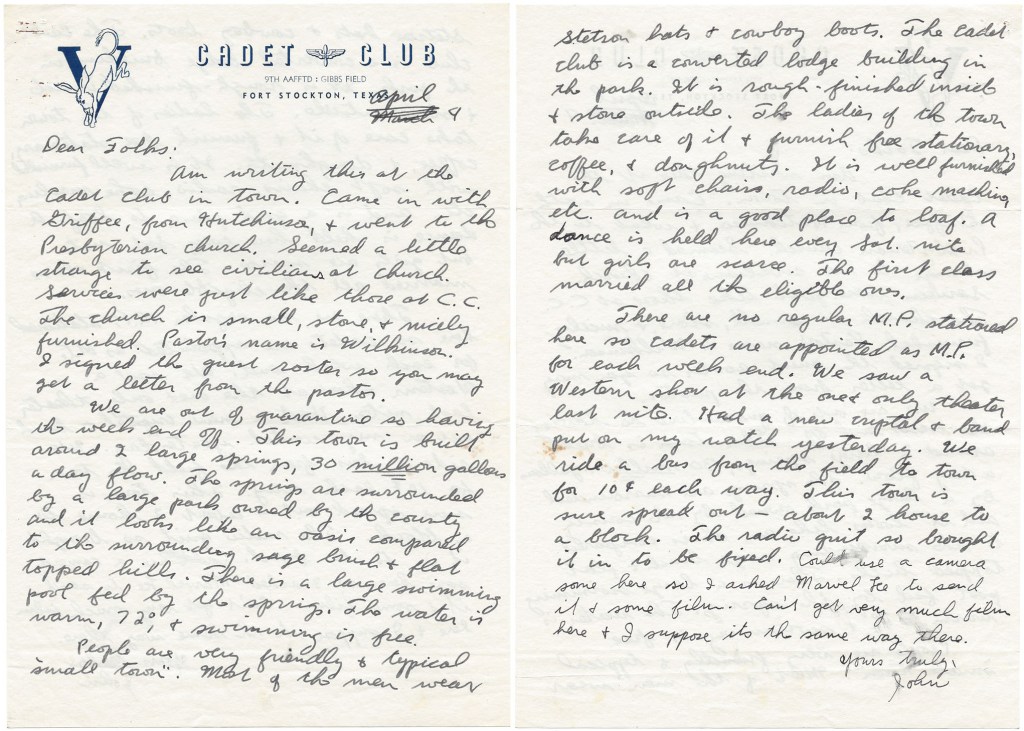 V CADET CLUB
9TH AAFFTD : GIBBS FIELD
FORT STOCKTON, TEXAS
April
March 9
Dear Folks.
Am writing this at the
cadet club in town. Came in with
Griffee, from Hutchinson, & went to the
Presbyterian church. Seemed a little
strange to see civilians at church.
Services were just like those at C.C.
The church is small, stone, & nicely
furnished. Pastor's name is Wilkinson.
I signed the guest roster so you may
get a letter from the pastor.
We are out of quarantine so having
the week end off. This town is built
around 2 large springs, 30 million gallons
a day flow. The springs are surrounded
by a large park owned by the county
and it looks like an oasis compared
to the surrounding sage brush & flat
topped hills. There is a large swimming
pool fed by the springs. The water is
warm, 72°, & swimming is free.
People are very friendly & typical
"small town". Most of the men wear
Stetson hats & cowboy boots. The cadet
club is a converted lodge building in
the park. It is rough-finished inside
& stone outside. The ladies of the town
take care of it & furnish free stationary,
coffee, & doughnuts. It is well furnished
with soft chairs, radio, coke machine,
etc. and is a good place to loaf. A
dance is held here every Sat. nite
but girls are scarce. The first class
married all the eligible ones.
There are no regular M.P. stationed
here so cadets are appointed as M.P.
for each week end. We saw a
Western show at the one & only theater
last nite. Had a new crystal & band
put on my watch yesterday. We
ride a bus from the field to town
for 10¢ each way. This town is
sure spread out - about 2 house to
a block. The radio quit so brought
it in to be fixed. Could use a camera
some here so I asked Marvel Lee to send
it & some film. Can't get very much film
here & I suppose its the same way there.
Yours truly,
John